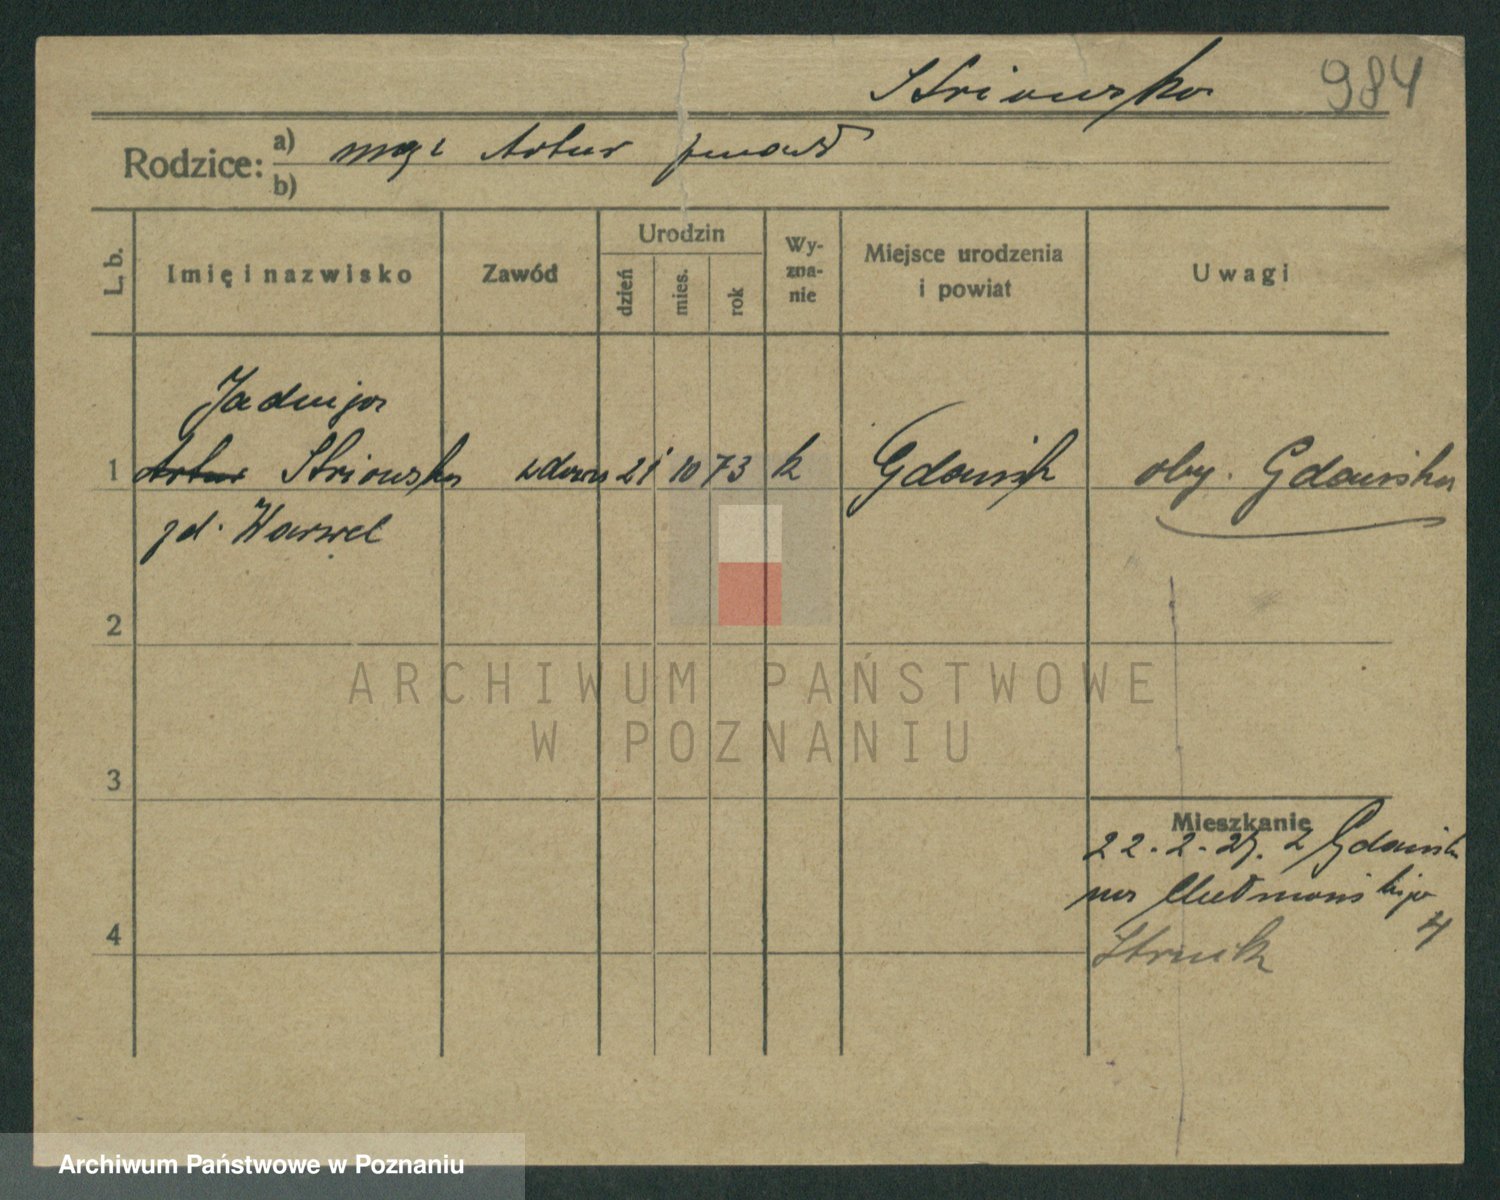 Striowska 984
Rodzice: a) mąż Artur zmarł
b)
L. b. Imię i nazwisko Zawód Urodzin dzień mies. rok Wy-zna-nie Miejsce urodzenia i powiat Uwagi
Jadwiga
1 Artur Striowska wdowa 21 10 73 k Gdańsk oby. Gdańska
zd. Warwel
2
ARCHIWUM PAŃSTWOWE
W POZNANIU
3
Mieszkanie
22.-2.-27. z Gdańsk
na
4
4
Archiwum Państwowe w Poznaniu